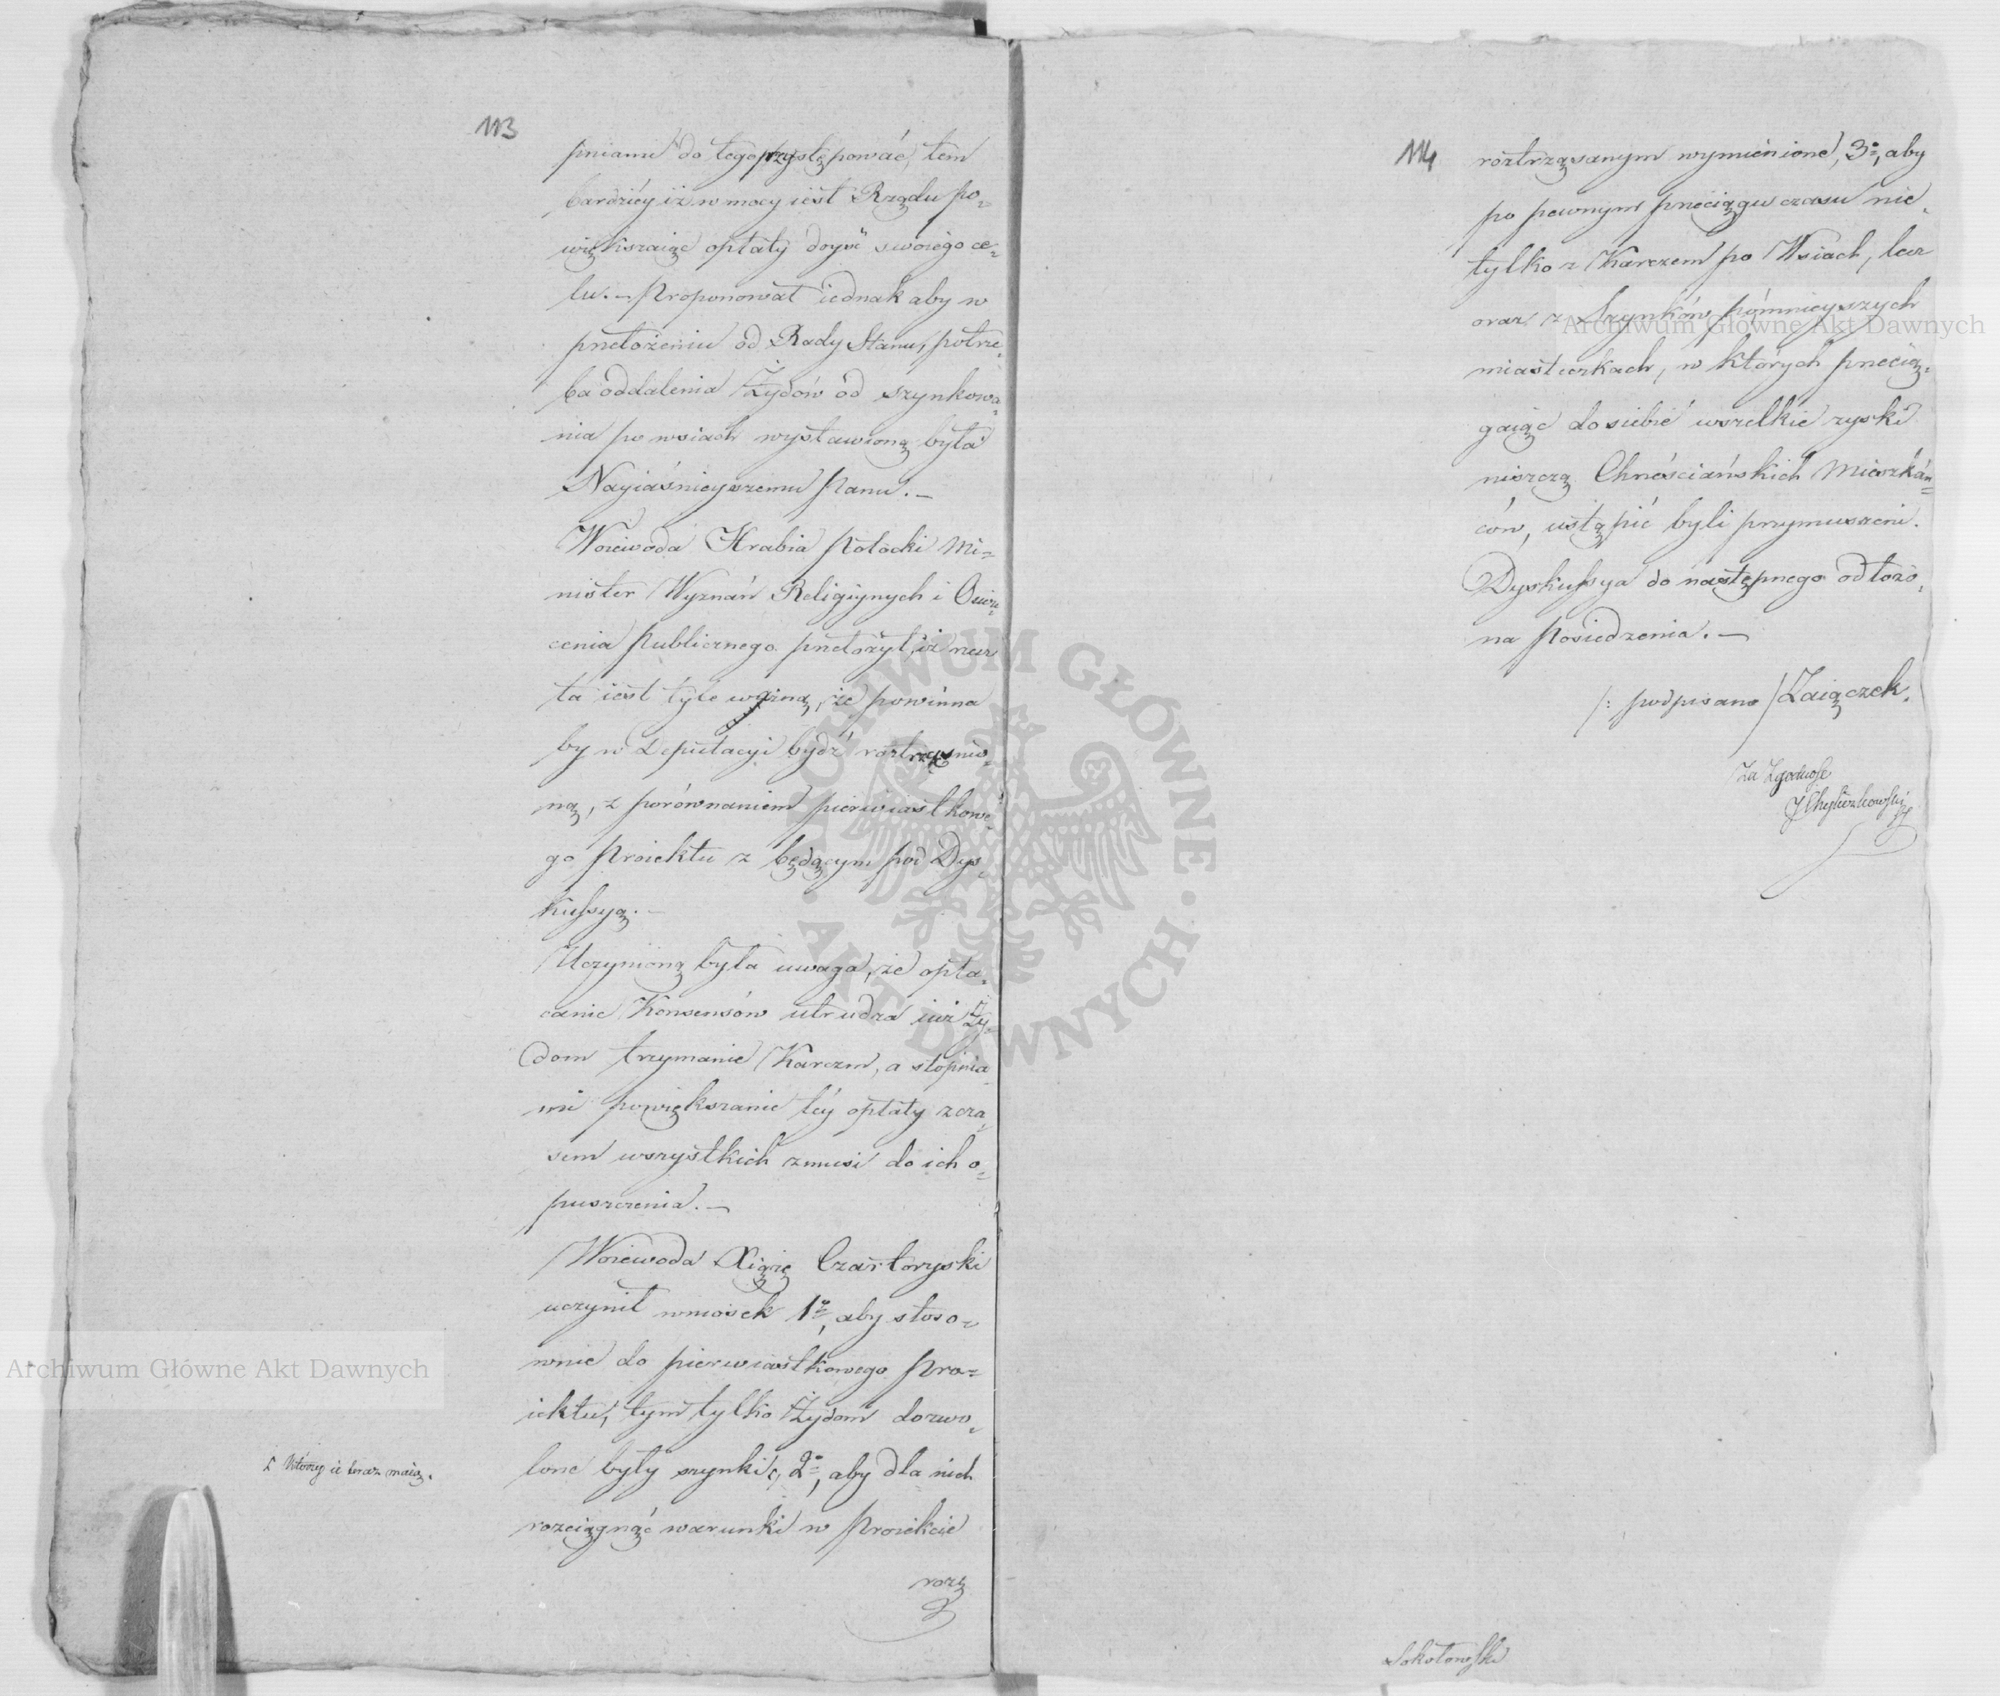 113
pniami do tego przystępować, tem
bardziéy iż w mocy iest Rządu po=
większaiąc opłaty doyść swoiego ce=
lu. — Proponował iednak aby w
przełożeniu od Rady Stanu, potrze=
ba oddalenia Żydów od szynkowa=
nia po wsiach wystawioną była
Nayiaśnieyszemu Panu. —
Woiewoda Hrabia Potocki Mi=
nister Wyznań Religiynych i Oświe=
cenia Publicznego przełożył, iż rzecz
ta iest tyle ważną, że powinna
by w Deputacyi bydź roztrząsnio=
ną, z porównaniem pierwiastkowe=
go Proiektu z będącym pod Dys=
kussyą. —
Uczynioną była uwaga, że opła=
canie Konsensów utrudza iuż Ży=
dom trzymanie Karczm, a stopnia=
mi powiększanie téy opłaty z cza=
sem wszystkich zmusi do ich o=
puszczenia. —
Woiewoda Xiąże Czartoryski
uczynił wniosek 1o, aby stoso=
wnie do pierwiastkowego Pro=
iektu, tym tylko Żydom dozwo=
lone były szynki, 2o, aby dla nich
którzy ie teraz maią.
rozciągnąć warunki w Proiekcie
rozt
114
roztrząsanym wymienione, 3o, aby
po pewnym przeciągu czasu nie=
tylko z Karczem po Wsiach, lecz
oraz z Szynków pómnieyszych
miasteczkach, w których przecią=
gaiąc do siebie wszelkie zyski
niszczą Chrześciańskich Mieszkań=
ców, ustąpić byli przymuszeni.
Dyskussya do następnego odłożo=
na Posiedzenia. —
/: podpisano / Zaiączek.
Za Zgodność
Sokołowski
Archiwum Główne Akt Dawnych
Archiwum Główne Akt Dawnych
ARCHIWUM GŁÓWNE · AKT DAWNYCH ·